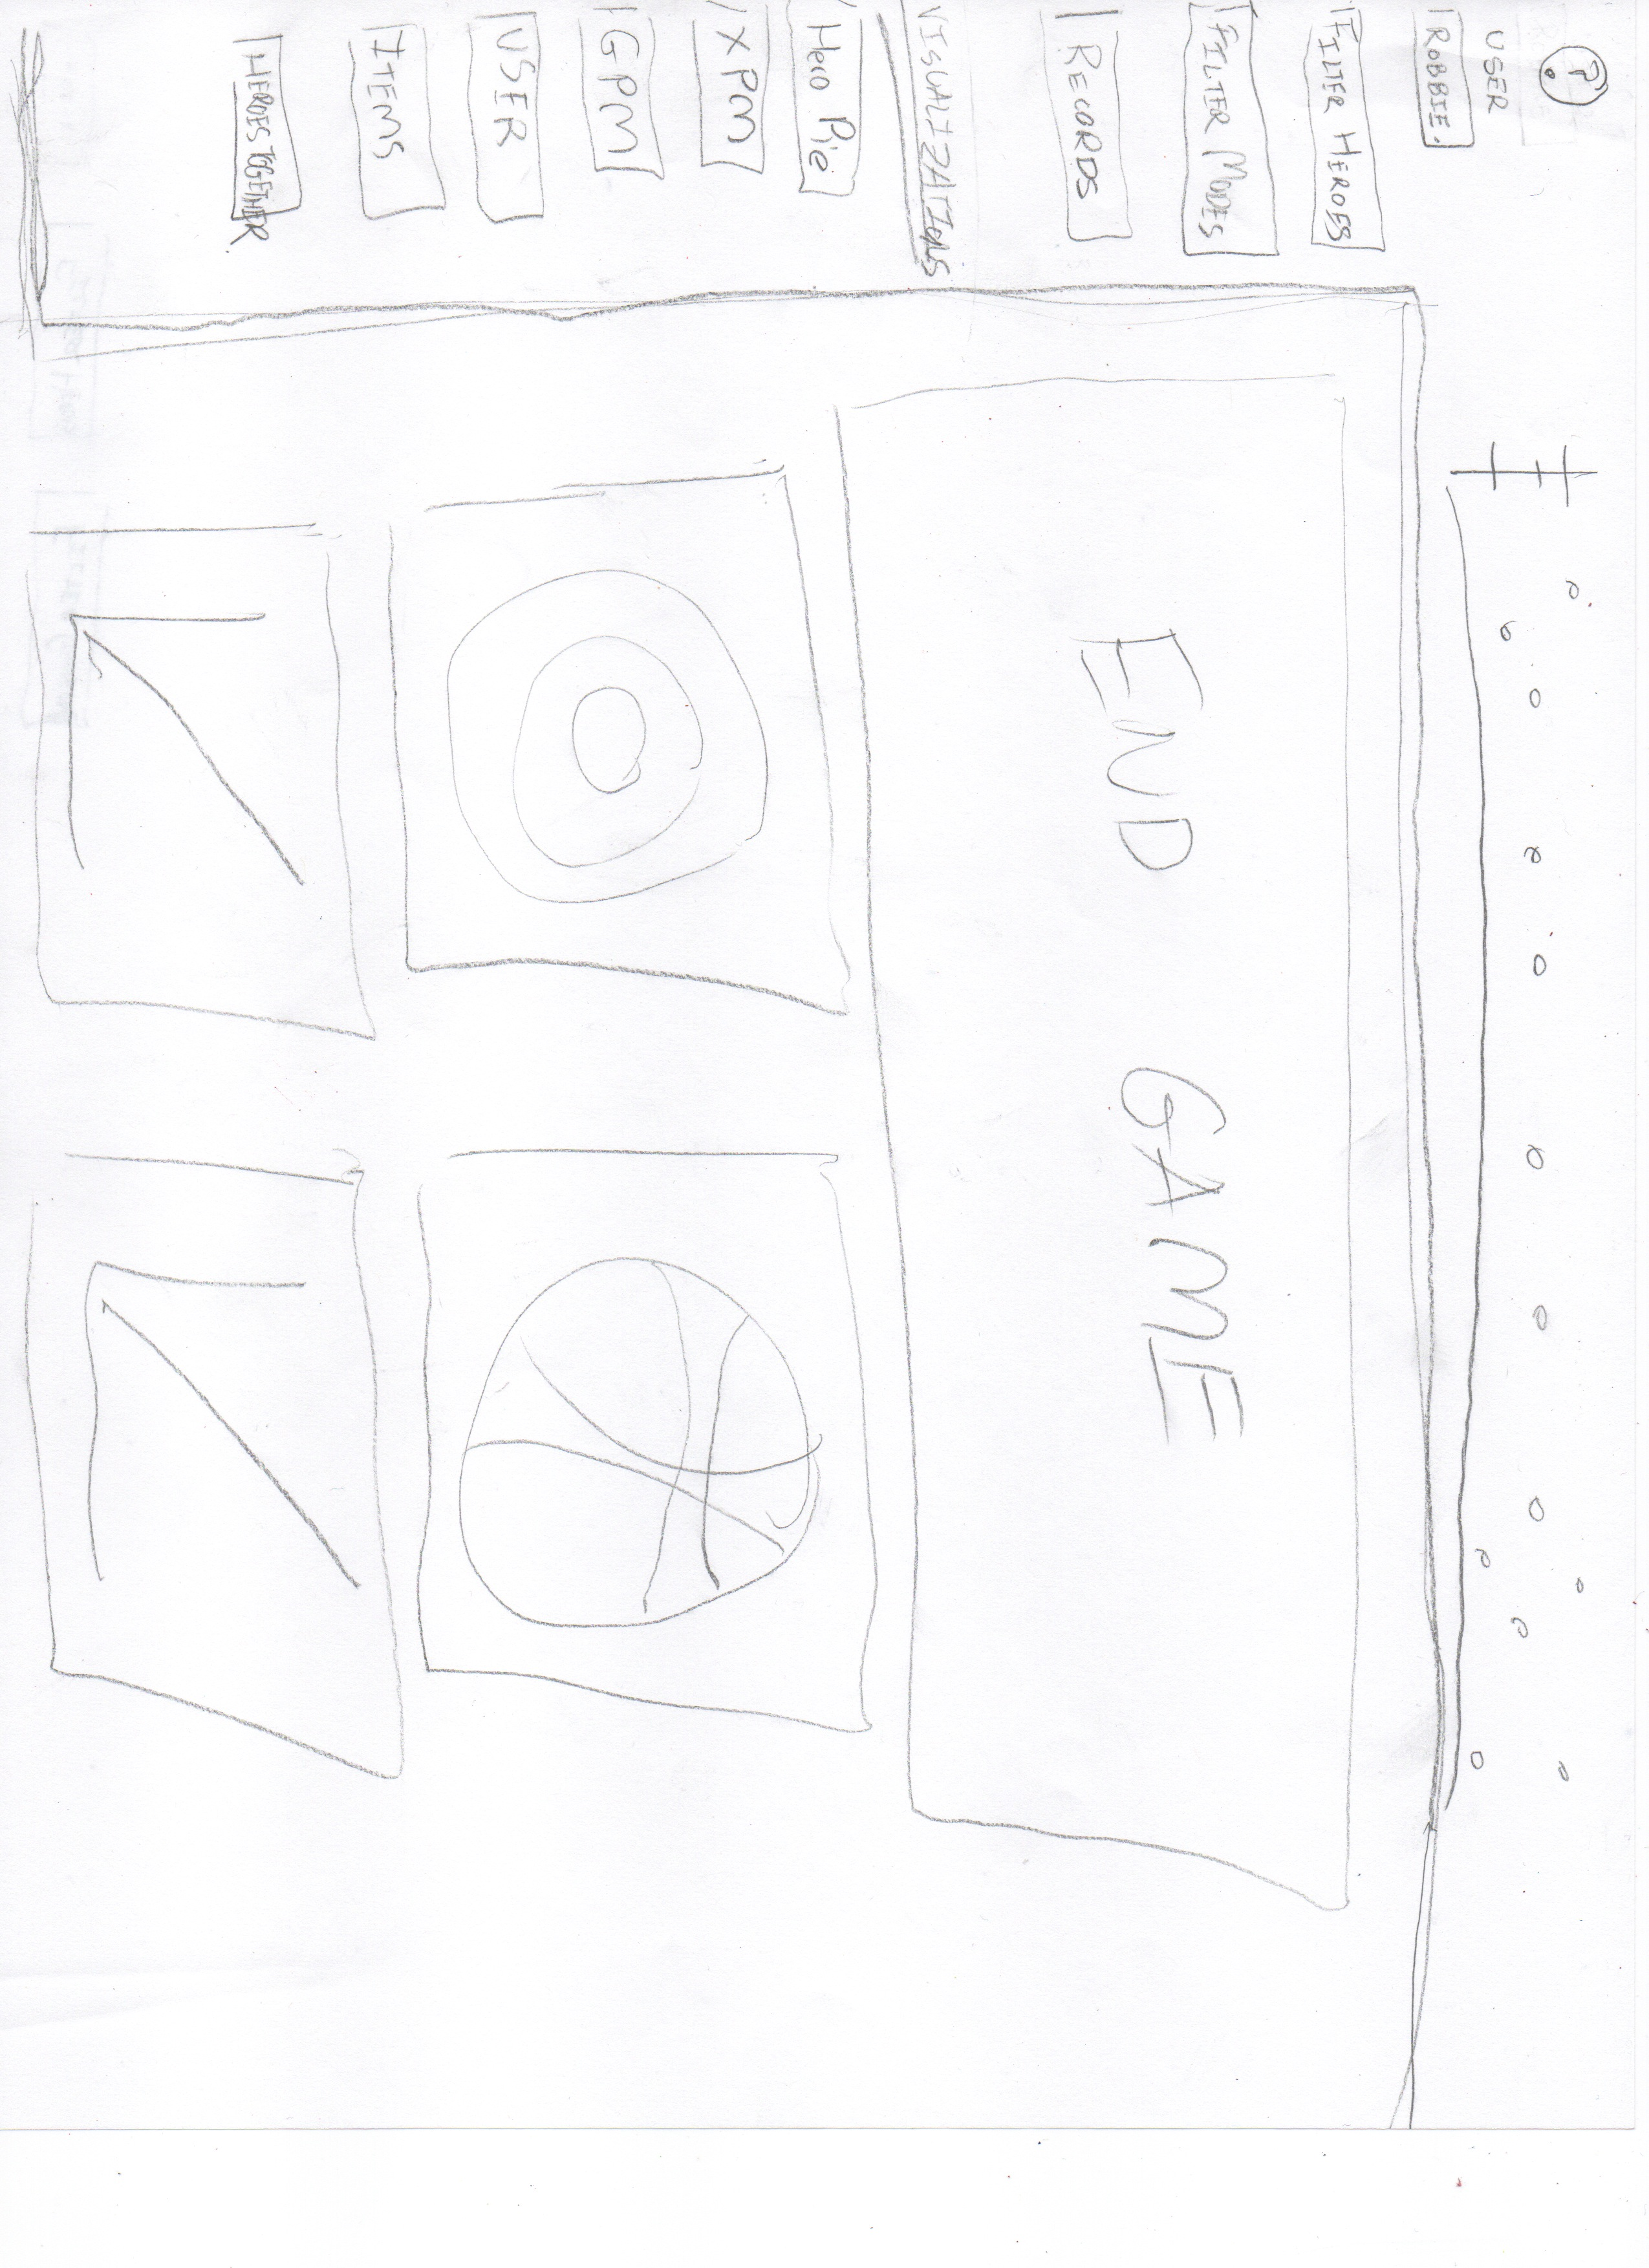 ?
USER
ROBBIE.
FILTER HEROES
FILTER MODES
RECORDS
VISUALIZATIONS
Hero Pie
XPM
GPM
USER
ITEMS
HEROES TOGETHER
END GAME